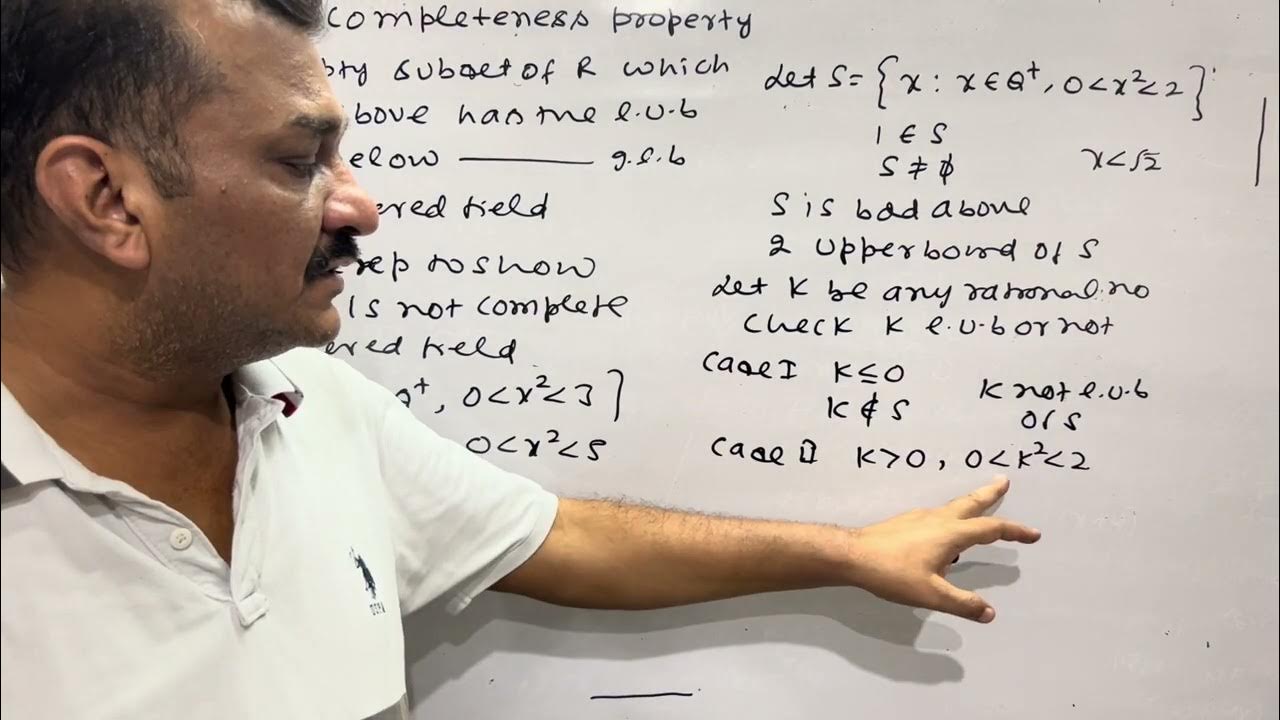 completeness property
subset of R which
bove has the l.u.b
elow ——— g.l.b
ered field
rep to show
is not complete
ered field
Q⁺, 0<x²<3}
0<x²<5
Let S = {x : x ∈ Q⁺, 0<x²<2}
1 ∈ S
S ≠ φ x<√2
S is bdd above
2 upper bound of S
Let K be any rational no
Check K l.u.b or not
Case I K≤0
K ∉ S K not l.u.b
of S
Case II K>0, 0<K²<2